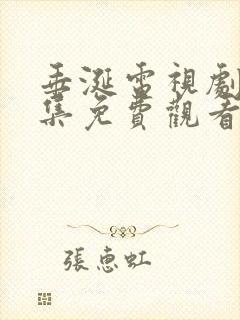 垂涎電視劇
集免費觀看
張惠虹